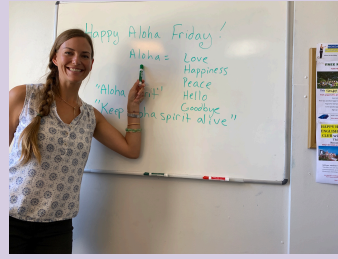 Happy Aloha Friday!
Aloha = Love
Happiness
Peace
"Aloha
Hello
Goodbye
"Keep aloha spirit alive"